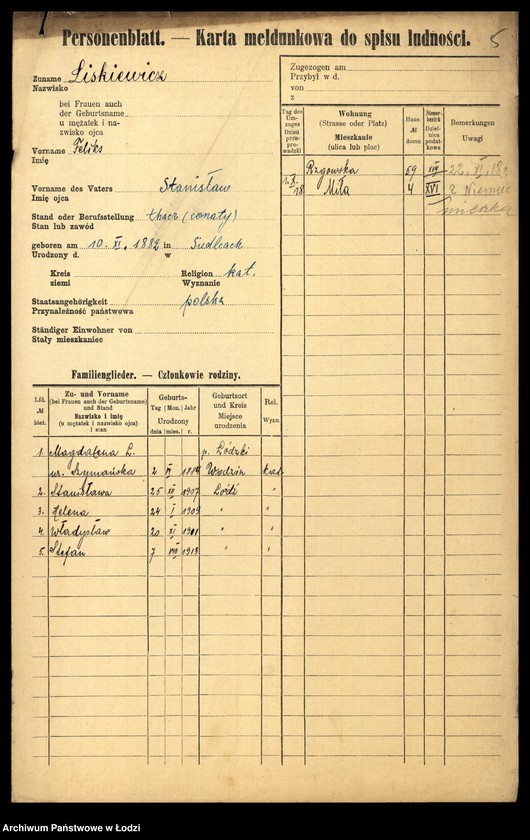 Personenblatt. — Karta meldunkowa do spisu ludności.
5
Zuname Liskiewicz
Nazwisko
bei Frauen auch
der Geburtsname
u mężatek i na-
zwisko ojca
Vorname Feliks
Imię
Vorname des Vaters Stanisław
Imię ojca
Stand oder Berufsstellung tkacz (żonaty)
Stan lub zawód
geboren am 10. XI. 1882 in Siedlcach
Urodzony d. w
Kreis
ziemi
Religion kat.
Wyznanie
Staatsangehörigkeit polska
Przynależność państwowa
Ständiger Einwohner von
Stały mieszkaniec
Zugezogen am
Przybył w d.
von
z
Tag des Um-zuges Dzień prze-prowadzki
Wohnung (Strasse oder Platz) Mieszkanie (ulica lub plac)
Haus-№ domu
Steuer-bezirk Dzielnica podatkowa
Bemerkungen Uwagi
Rzgowska 59 XIII 22. VI. 18
1. X. 18 Miła 4 XVI z Niemiec
mieszka
Familienglieder. — Członkowie rodziny.
Lfd. № bież.
Zu- und Vorname (bei Frauen auch der Geburtsname) und Stand Nazwisko i imię (u mężatek i nazwisko ojca) i stan
Geburts- Tag Mon. Jahr Urodzony dnia mies. r.
Geburtsort und Kreis Miejsce urodzenia
Rel. Wyzn.
1. Magdalena L. p. Łódzki
ur. Szymańska 2 VI Wodzin kat.
2. Stanisława 25 XII 1907 Łódź "
3. Helena 24 I 1909 " "
4. Władysław 20 XI 1911 " "
5. Stefan 7 VIII 1913 " "
Archiwum Państwowe w Łodzi